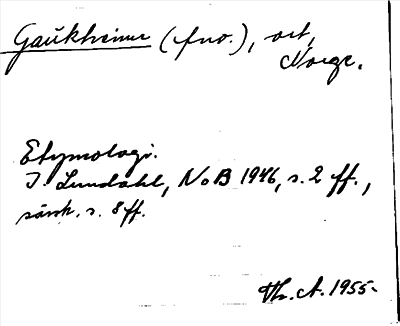 Gaukheimr (fno.), ort,
Norge.
Etymologi.
I. Lundahl, NoB 1946, s. 2 ff.,
särsk. s. 8 ff.
Th. A. 1955.